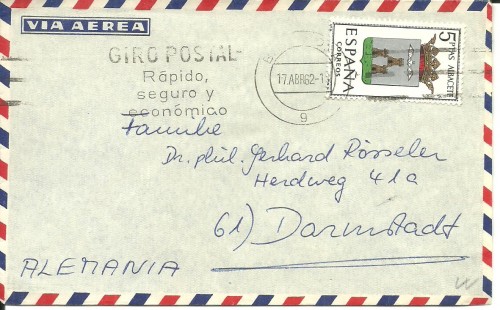 VIA AEREA
GIRO POSTAL-
Rápido,
seguro y
económico
17 ABR 62-1
9
5 PTAS ALBACETE
ESPAÑA
CORREOS
Familie
Dr. phil. Gerhard Rösseler
Herdweg 41a
61) Darmstadt
ALEMANIA